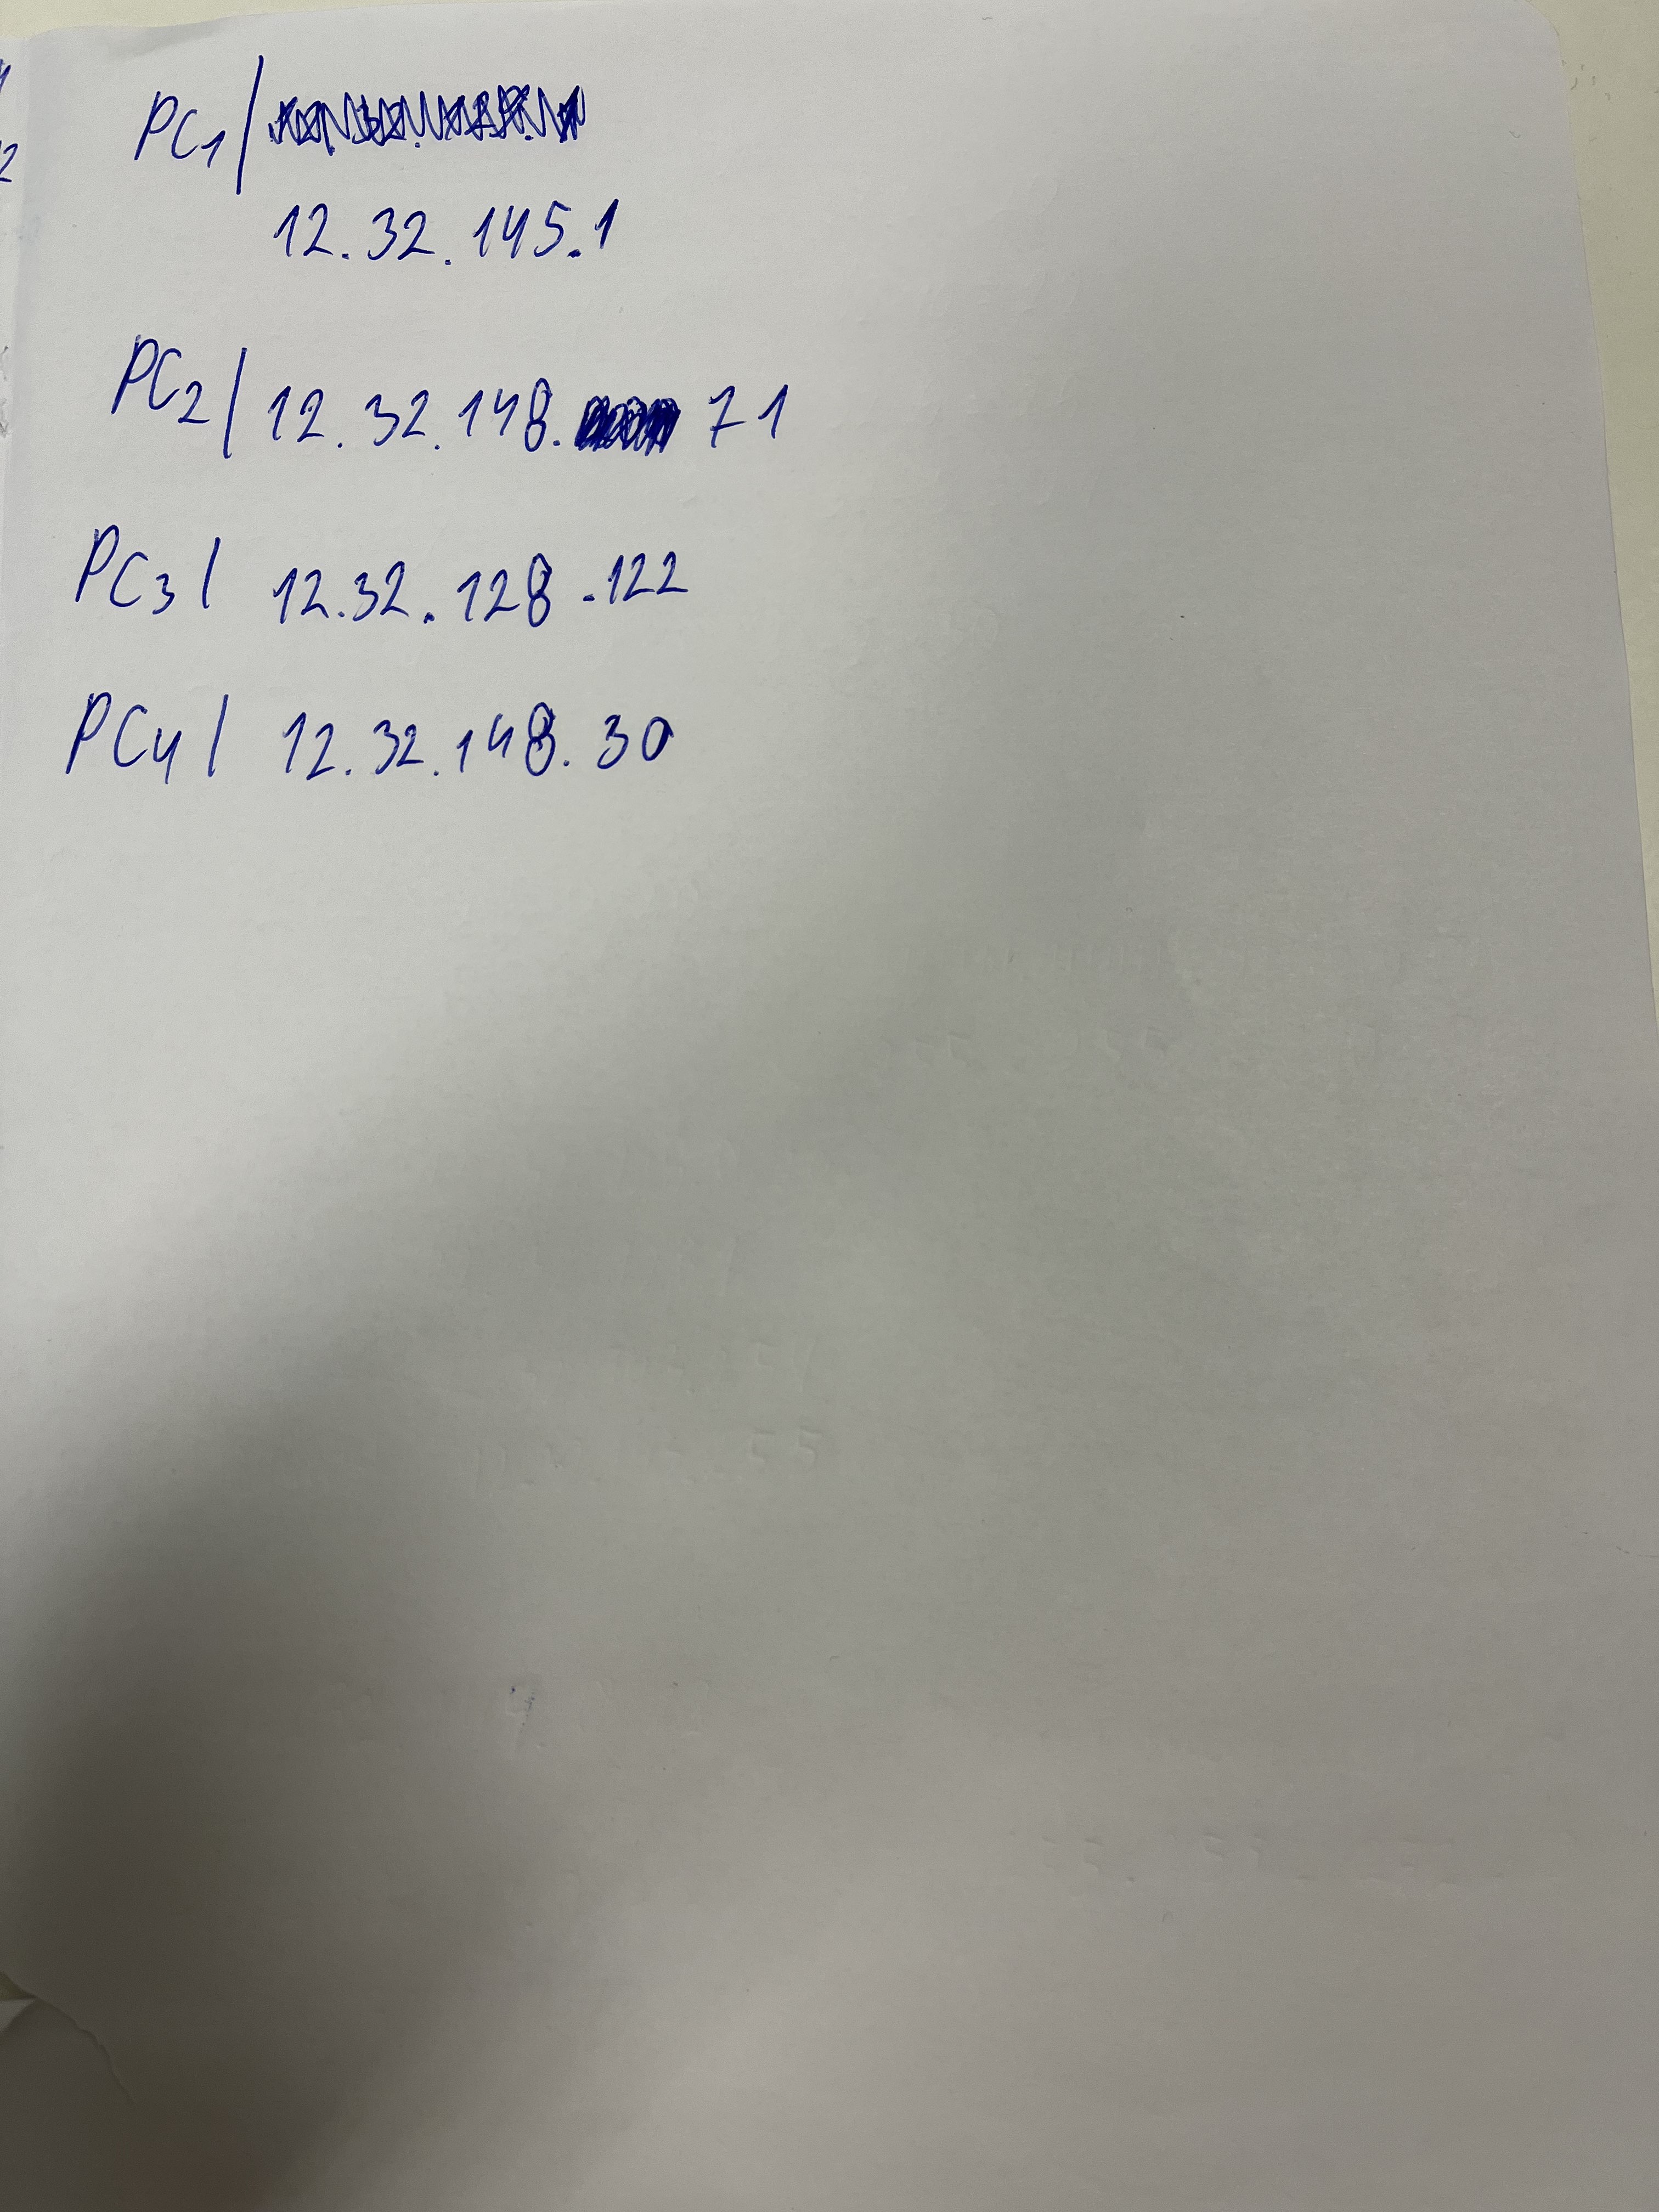 PC1 |
12.32.145.1
PC2 | 12.32.148. 71
PC3 | 12.32.128.122
PC4 | 12.32.148.30